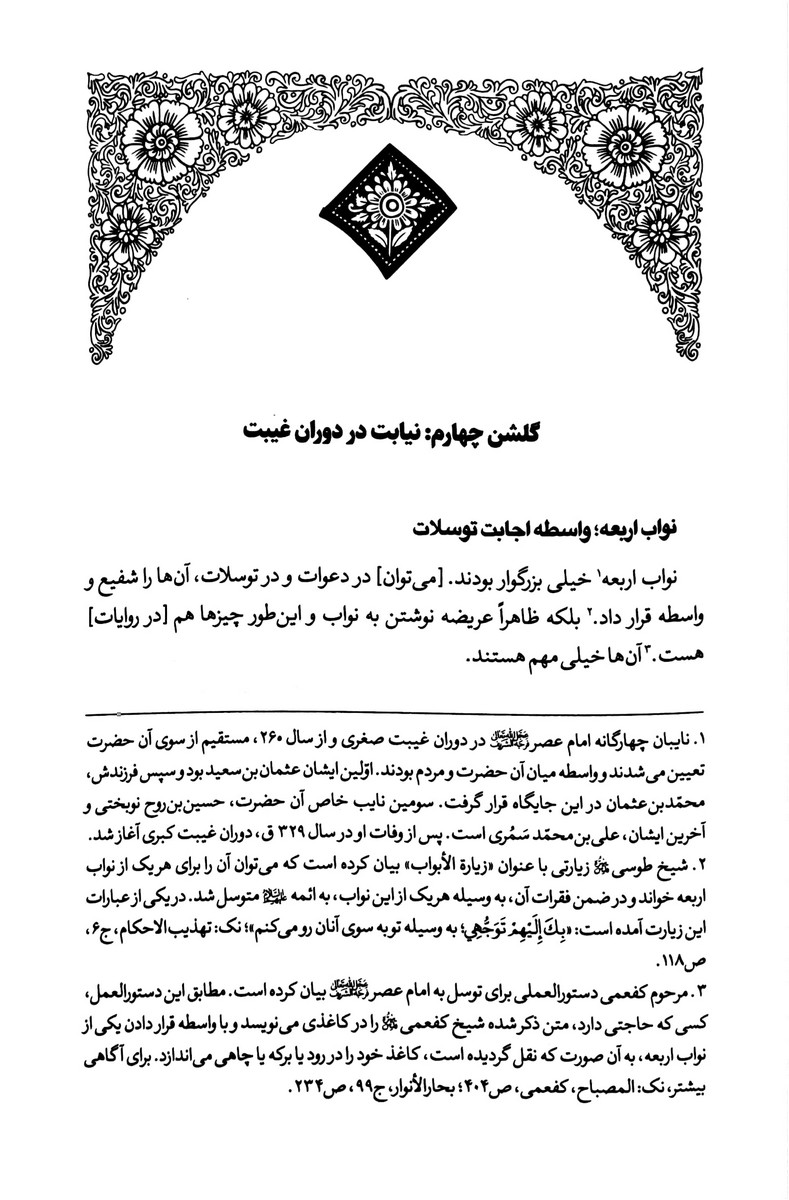 گلشن چهارم: نیابت در دوران غیبت
نواب اربعه؛ واسطه اجابت توسلات
نواب اربعه۱ خیلی بزرگوار بودند. [می‌توان] در دعوات و در توسلات، آن‌ها را شفیع و
واسطه قرار داد.۲ بلکه ظاهراً عریضه نوشتن به نواب و این‌طور چیزها هم [در روایات]
هست.۳ آن‌ها خیلی مهم هستند.
۱. نایبان چهارگانه امام عصر در دوران غیبت صغری و از سال ۲۶۰، مستقیم از سوی آن حضرت
تعیین می‌شدند و واسطه میان آن حضرت و مردم بودند. اوّلین ایشان عثمان بن سعید بود و سپس فرزندش،
محمّد بن عثمان در این جایگاه قرار گرفت. سومین نایب خاص آن حضرت، حسین‌بن‌روح نوبختی و
آخرین ایشان، علی‌بن‌محمّد سَمُری است. پس از وفات او در سال ۳۲۹ ق، دوران غیبت کبری آغاز شد.
۲. شیخ طوسی زیارتی با عنوان «زیارة الأبواب» بیان کرده است که می‌توان آن را برای هر یک از نواب
اربعه خواند و در ضمن فقرات آن، به وسیله هر یک از این نواب، به ائمه متوسل شد. در یکی از عبارات
این زیارت آمده است: «بِكَ إِلَيْهِمْ تَوَجُّهِي؛ به وسیله تو به سوی آنان رو می‌کنم»؛ نک: تهذیب‌الاحکام، ج۶،
ص۱۱۸.
۳. مرحوم کفعمی دستورالعملی برای توسل به امام عصر بیان کرده است. مطابق این دستورالعمل،
کسی که حاجتی دارد، متن ذکر شده شیخ کفعمی را در کاغذی می‌نویسد و با واسطه قرار دادن یکی از
نواب اربعه، به آن صورت که نقل گردیده است، کاغذ خود را در رود یا برکه یا چاهی می‌اندازد. برای آگاهی
بیشتر، نک: المصباح، کفعمی، ص۴۰۴؛ بحارالأنوار، ج۹۹، ص۲۳۴.